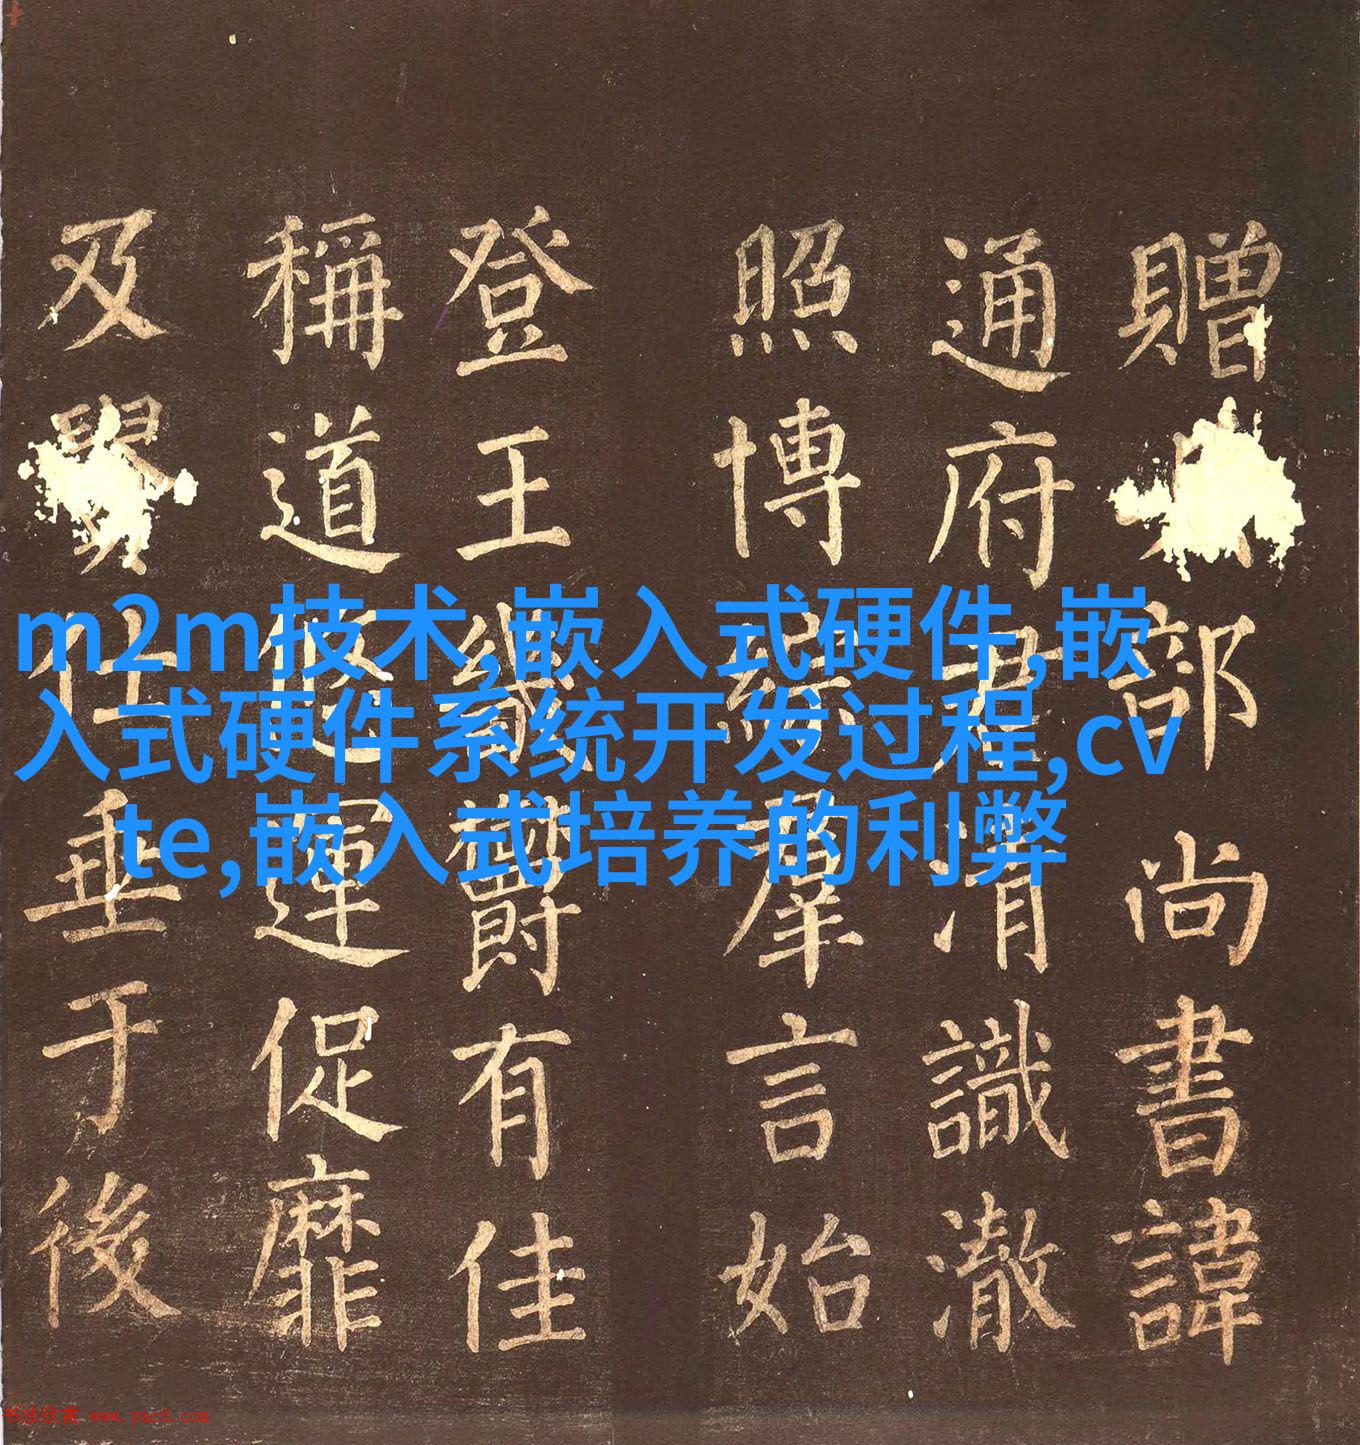 m2m技术,嵌入式硬件,嵌
入式硬件系统开发过程,cv
te,嵌入式培养的利弊
贈部尚書諱
通府君清識澈
照博綜羣言始
登王幾爵有佳
稱道運促靡
及仕垂于後
书法欣赏 www.yac8.com